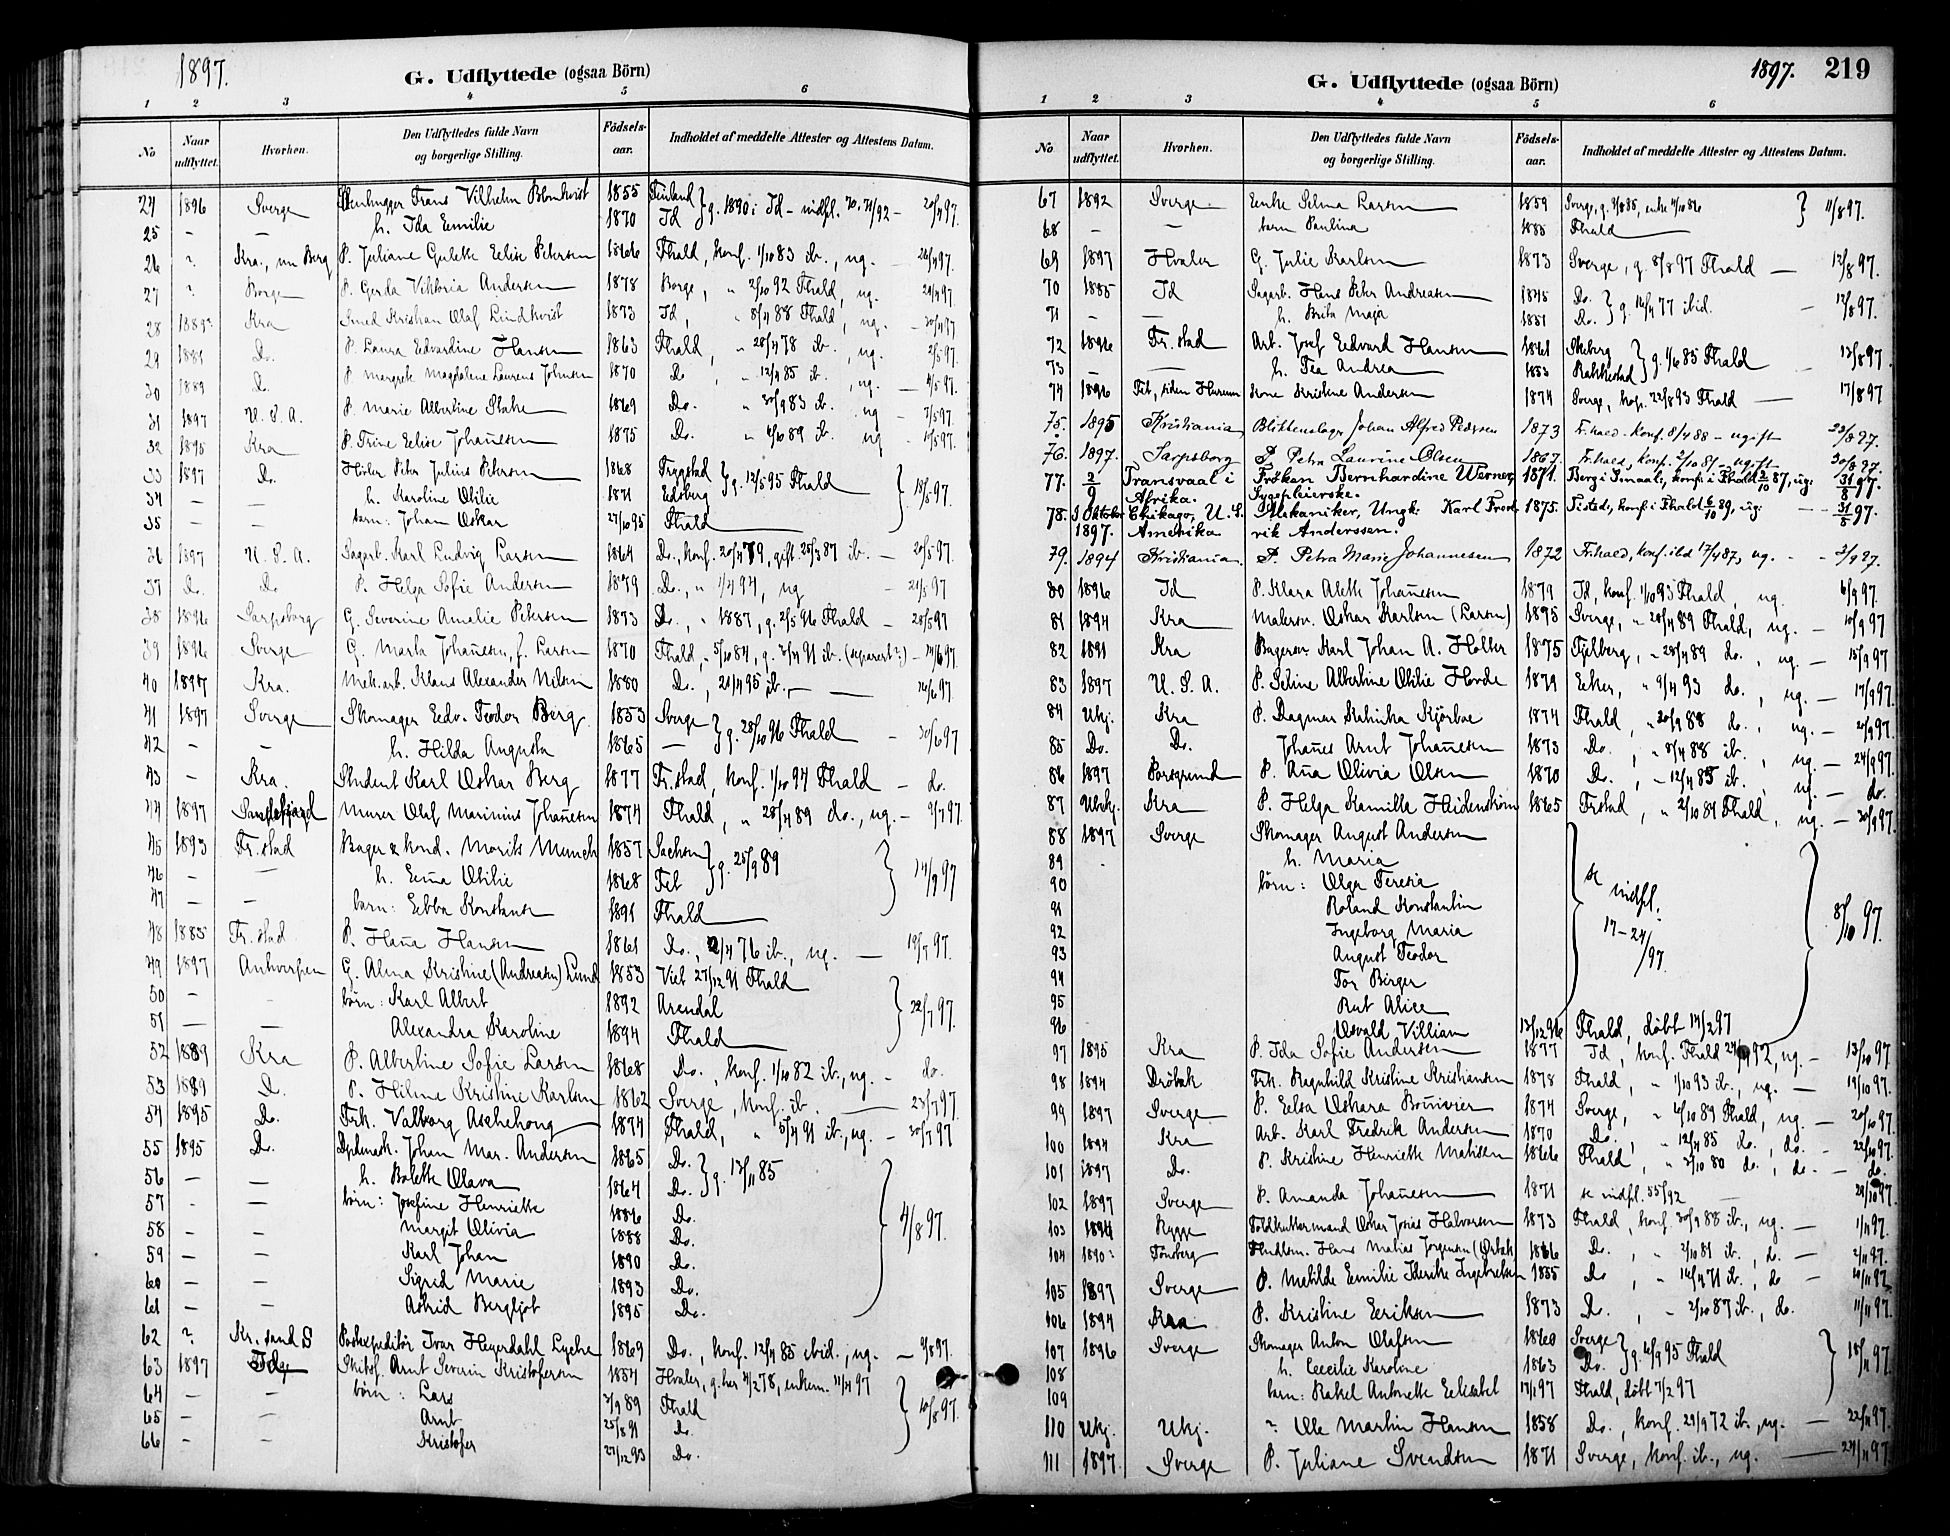 1897.
G. Udflyttede (ogsaa Börn)
1 2 3 4 5 6
No Naar udflyttet. Hvorhen. Den Udflyttedes fulde Navn og borgerlige Stilling. Födsels-aar. Indholdet af meddelte Attester og Attestens Datum.
24 1896 Sverge Stenhugger Frans Vilhelm Blomkvist 1855 Finland } g. 1890 i Id – indfl. 70,71/92 – 20/4 97.
25 - — h. Ida Emilie 1870 Id
26 ? Kra., nu Berg P. Juliane Gulette Elise Petersen 1866 Fhald, konf. 1/10 83 ib., ug. 97.
27 ? Borge P. Gerda Viktoria Andersen 1878 Borge, " 2/10 92 Fhald, ug. 97.
28 1889? Kra Smed Kristian Olaf Lindkvist 1873 Id, " 8/4 88 Fhald, ug.
29 1881 Do. P. Laura Edvardine Hansen 1863 Fhald, " 28/4 78 ib., ug. 2/5 97.
30 1889 Do. P. Margrete Magdalene Laurens Johnsen 1870 Do " 12/4 85 ib., ug. 4/5 97.
31 1897 U. S. A. P. Marie Albertine Stake 1869 Do. " 30/9 83 ib. ug 97.
32 1895 Kra P. Trine Elise Johannesen 1875 Do. " 6/10 89 ib. ug 97.
33 1897 Do. Peter Julius Petersen 1868 Trygstad } g. 12/5 95 Fhald } 18/5 97.
34 - — h. Karoline Otilie 1871 Eidsberg
35 - — barn: Johan Oskar 27/10 95 Fhald
36 1897 U. S. A. Sagarb. Karl Ludvig Larsen 1864 Do., konf. 20/4 79, gift 25/3 87 ib. – 20/5 97.
37 Do. Do P. Helga Sofie Andersen 1879 Do., " 1/4 94, ug – 21/5 97
38 1896 Sarpsborg G. Severine Amalie Petersen 1873 Do., " 1887, g. 2/5 96 Fhald – 28/5 97
39 1896 Sverge G. Marta Johannesen, f. Larsen 1870 Fhald, " 5/10 84, g. 3/4 91 ib. (separert?) – 14/6 97.
40 1897 Kra. Mek. arb. Klaus Alexander Nilsen 1880 Do., 21/4 95 ib., — 97.
41 1897 Sverge Skomager Edv. Teodor Berg 1853 Sverge } g. 28/10 96 Fhald – 30/6 97
42 - — h. Hilda Augusta 1865 —
43 - Kra. Student Karl Oskar Berg 1877 Fr.stad, konf. 1/10 94 Fhald – do.
44 1897 Sandefjord Murer Olaf Marinius Johannesen 1874 Fhald, " 28/4 89 do., ug. – 97.
45 1893 Fr.stad Bager & kond. Morits Munch 1857 Sachsen } g. 25/9 89 } 14/7 97
46 - — h. Emma Otilie 1868 Fet
47 - — barn: Ebba Konstanse 1891 Fhald
48 1885 Fr.stad P. Hanna Hansen 1861 Do., 2/4 76 ib., ug. — 19/7 97.
49 1897 Antwerpen G. Alma Kristine (Andreasen) Lund 1853 Viet 27/12 91 Fhald
50 - - börn: Karl Albert 1892 Arendal } 22/7 97.
51 — — Alexandra Karoline 1894 Fhald
52 1889 Kra P. Albertine Sofie Larsen 1868 Do., konf. 1/10 82 ib., ug. – do.
53 1889 Do. P. Hilma Kristine Karlsen 1862 Sverge, konf. ib. — 23/7 97.
54 1895 Do. Frk. Valborg Aschehoug 1874 Fhald, " 5/4 91 ib., ug. – 30/7 97
55 1895 Do. Johan Mar. Andersen 1865 Do. } g. 13/11 85
56 - — h. Bolette Olava 1864 Do.
57 - — börn: Josefine Henriette 1886 Do. } 4/8 97.
58 - — Margit Olivia 1888 Do.
59 - — Karl Johan 1890 Do.
60 - — Sigrid Marie 1893 Do.
61 - — Astrid Bergljot 1895 Do.
62 ? Kr.sand S Postexpeditör Ivar Heyerdahl Lyche 1869 Do., konf. 12/4 85 ibid., ug. – 9/8 97.
63 1897 Arnt Severin Kristofersen 1854 Hvaler, g. her 4/2 78, enkem. 11/4 97
64 - — börn: Lars 3/9 89 Fhald } 10/8 97.
65 - — Arnt 25/8 91 Do.
66 - — Kristofer 27/12 93 Do.
1897. 219
G. Udflyttede (ogsaa Börn)
1 2 3 4 5 6
No Naar udflyttet. Hvorhen. Den Udflyttedes fulde Navn og borgerlige Stilling. Födsels-aar. Indholdet af meddelte Attester og Attestens Datum.
67 1892 Sverge Enke Selma Larsen 1859 Sverge, g. 85, enke 4/10 86 } 11/8 97.
68 - — barn Paulina 1885 Fhald
69 1897 Hvaler G. Julie Karlsen 1873 Sverge, g. 8/8 97 Fhald — 12/8 97.
70 1885 Id Sagarb. Hans Peter Andreasen 1848 Do. } g. 16/4 77 ibid. – 12/8 97.
71 - — h. Brita Maja 1851 Do.
72 1896 Fr.stad Arb. Josef Edvard Hansen 1861 Skeberg } g. 1/6 85 Fhald – 13/8 97
73 - — h. Tea Andrea 1853 Rakkestad
74 1896 Fet, siden Hurum Kone Kristine Andersen 1874 Sverge, kop. 22/8 93 Fhald — 17/8 97
75. 1895 Kristiania Blikkenslager Johan Alfred Pedersen 1873 Fr.hald. konf. 8/4 88 – ugift 23/8 97.
76. 1897. Sarpsborg P. Petra Laurine Olsen 1867. Fr.hald, konf. 2/10 81 – ugift 30/8 97.
77. 2/9 Transvaal i Afrika. Fröken Bernhardine Werner, Sygepleierske. 1871. Berg i Smaal., konf. i Fhald 2/10 87, ug. 31/8 97.
78. 1 Oktober 1897. Chikago, U. S. Amerika Mekaniker, Ungk. Karl Fredrik Anderssen. 1875. Tistedl., konf. i Fhald 6/10 89, ug. — 97.
79. 1894 Kristiania. P. Petra Marie Johannesen 1872 Fr.hald, konf. ibd 17/4 87, ug. – 3/9 97.
80 1896 Id P. Klara Alette Johannesen 1879 Id, konf. 1/10 93 Fhald, ug. 6/9 97.
81 1894 Kra Malersv. Oskar Karlsen (Larsen) 1873 Sverge, " 28/4 89 Fhald, ug. – 10/9 97
82 1891 Kra Bagersv. Karl Johan A. Holter 1875 Fjelberg, " 28/4 89 do., ug. – 15/9 97
83 1897 U. S. A. P. Seline Albertine Otilie Horde 1879 Eeker, " 9/4 93 do., ug. — 17/9 97.
84 Ukj. Kra P. Dagmar Katinka Kjörboe 1874 Fhald, " 88 do., ug. – 97.
85 Do. Do. Johannes Arnt Johannesen 1873 Do., " 8/4 88 ib., ug. – 24/9 97.
86 1897 Porsgrund P. Anna Olivia Olsen 1870 Do., " 12/4 85 ib., ug. — do.
87 Ubekj. Kra P. Helga Kamilla Heidenström 1865 Frstad, " 2/10 81 Fhald, ug. — 30/9 97.
88 1897 Sverge Skomager August Andersen
89 - h. Maria
90 börn: Olga Teresia
91 Roland Konstantin } se indfl. 17–24/97 } 8/10 97.
92 Ingeborg Maria
93 August Teodor
94 Tor Birger
95 Rut Alice
96 Osvald Villiam 13/12 96 Fhald, döbt 14/2 97
97 1895 Kra P. Ida Sofie Andersen 1877 Id, konf. Fhald 92, ug. – 13/10 97
98 1894 Dröbak Frk. Ragnhild Kristine Kristiansen 1878 Fhald, " 1/10 93 ib., ug. — 19/10 97.
99 1897 Sverge P. Elsa Oskara Bonnivier 1874 Sverge, " 6/10 89 Fhald, ug. – 20/10 97.
100 1894 Kra Arb. Karl Fredrik Andersen 1870 Do., " 12/4 85 do., do. – 22/10 97.
101 1897 Do. P. Kristine Henriette Matisen 1866 Fhald, " 3/10 80 do., do. – do.
102 1897 Sverge P. Amanda Johannesen 1871 se indfl. 55/92 — 97
103 1896 Rygge Foldkuttermand Oskar Josias Halvorsen 1873 Fhald, konf. 30/9 88 ib., ug. – 1/11 97.
104 1890? Tönsberg Handlsm. Hans Matias Jörgensen (Orbæk) 1866 Do., " 2/10 81 ib., do. — 2/11 97.
105 1897 Sverge P. Matilde Emilie Iderike Ingebretsen 1855 Do, " 16/4 71 ib., do – 10/11 97
106 1894 Kra P. Kristine Eriksen 1873 Do., " 2/10 87 ib., do. 11/11 97.
107 1896 Sverge Skomager Anton Olafsen 1860 Sverge } g. 6/9 95 Fhald } 18/11 97
108 h. Cecilie Karoline 1863 Do.
109 barn: Rakel Antonette Elisabet 97 Fhald, döbt 7/2 97
110 Ukj. Ukj. ? Ole Martin Hansen 1858 Do., konf. 29/9 72 ib., ug. — 22/11 97.
111 1897. Sverge P. Juliane Svendsen 1871 Sverge, konf. ib., ug. — 24/11 97.